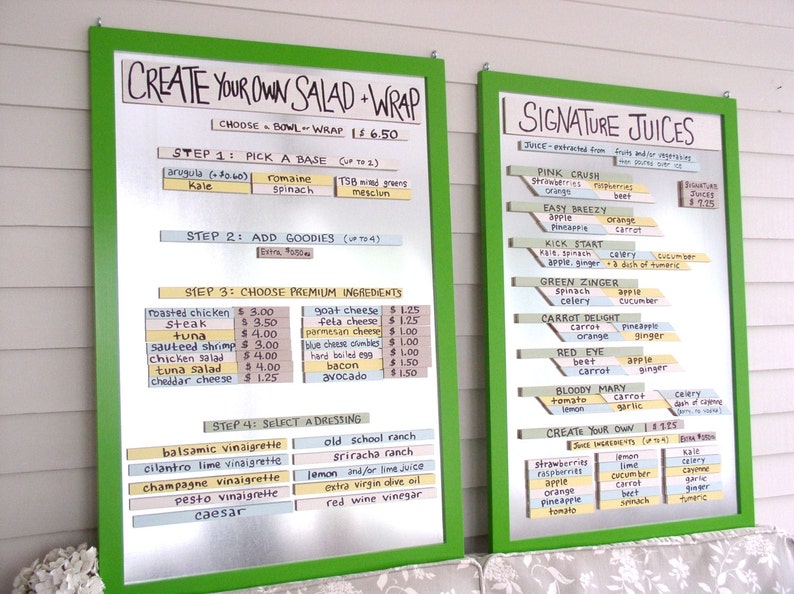 CREATE YOUR OWN SALAD + WRAP
CHOOSE a BOWL or WRAP | $ 6.50
STEP 1: PICK A BASE (UP TO 2)
arugula (+$0.60) romaine TSB mixed greens
Kale spinach mesclun
STEP 2: ADD GOODIES (UP TO 4)
Extra, $0.50 ea
STEP 3: CHOOSE PREMIUM INGREDIENTS
roasted chicken $ 3.00
steak $ 3.50
tuna $ 4.00
sauteed shrimp $ 3.00
chicken salad $ 4.00
tuna salad $ 4.00
cheddar cheese $ 1.25
goat cheese $ 1.25
feta cheese $ 1.25
parmesan cheese $ 1.00
blue cheese crumbles $ 1.00
hard boiled egg $ 1.00
bacon $ 1.50
avocado $ 1.50
STEP 4: SELECT A DRESSING
balsamic vinaigrette
cilantro lime vinaigrette
champagne vinaigrette
pesto vinaigrette
caesar
old school ranch
sriracha ranch
lemon and/or lime juice
extra virgin olive oil
red wine vinegar
SIGNATURE JUICES
JUICE - extracted from fruits and/or vegetables
then poured over ice
SIGNATURE
JUICES
$ 7.25
PINK CRUSH
strawberries raspberries
orange beet
EASY BREEZY
apple orange
pineapple carrot
KICK START
Kale, spinach celery cucumber
apple, ginger + a dash of tumeric
GREEN ZINGER
spinach apple
celery cucumber
CARROT DELIGHT
carrot pineapple
orange ginger
RED EYE
beet apple
carrot ginger
BLOODY MARY
tomato carrot celery
lemon garlic dash of cayenne
(sorry, no vodka)
CREATE YOUR OWN | $ 7.25
JUICE INGREDIENTS (UP TO 4) EXTRA $0.50 ea
strawberries
raspberries
apple
orange
pineapple
tomato
lemon
lime
cucumber
carrot
beet
spinach
Kale
celery
cayenne
garlic
ginger
tumeric